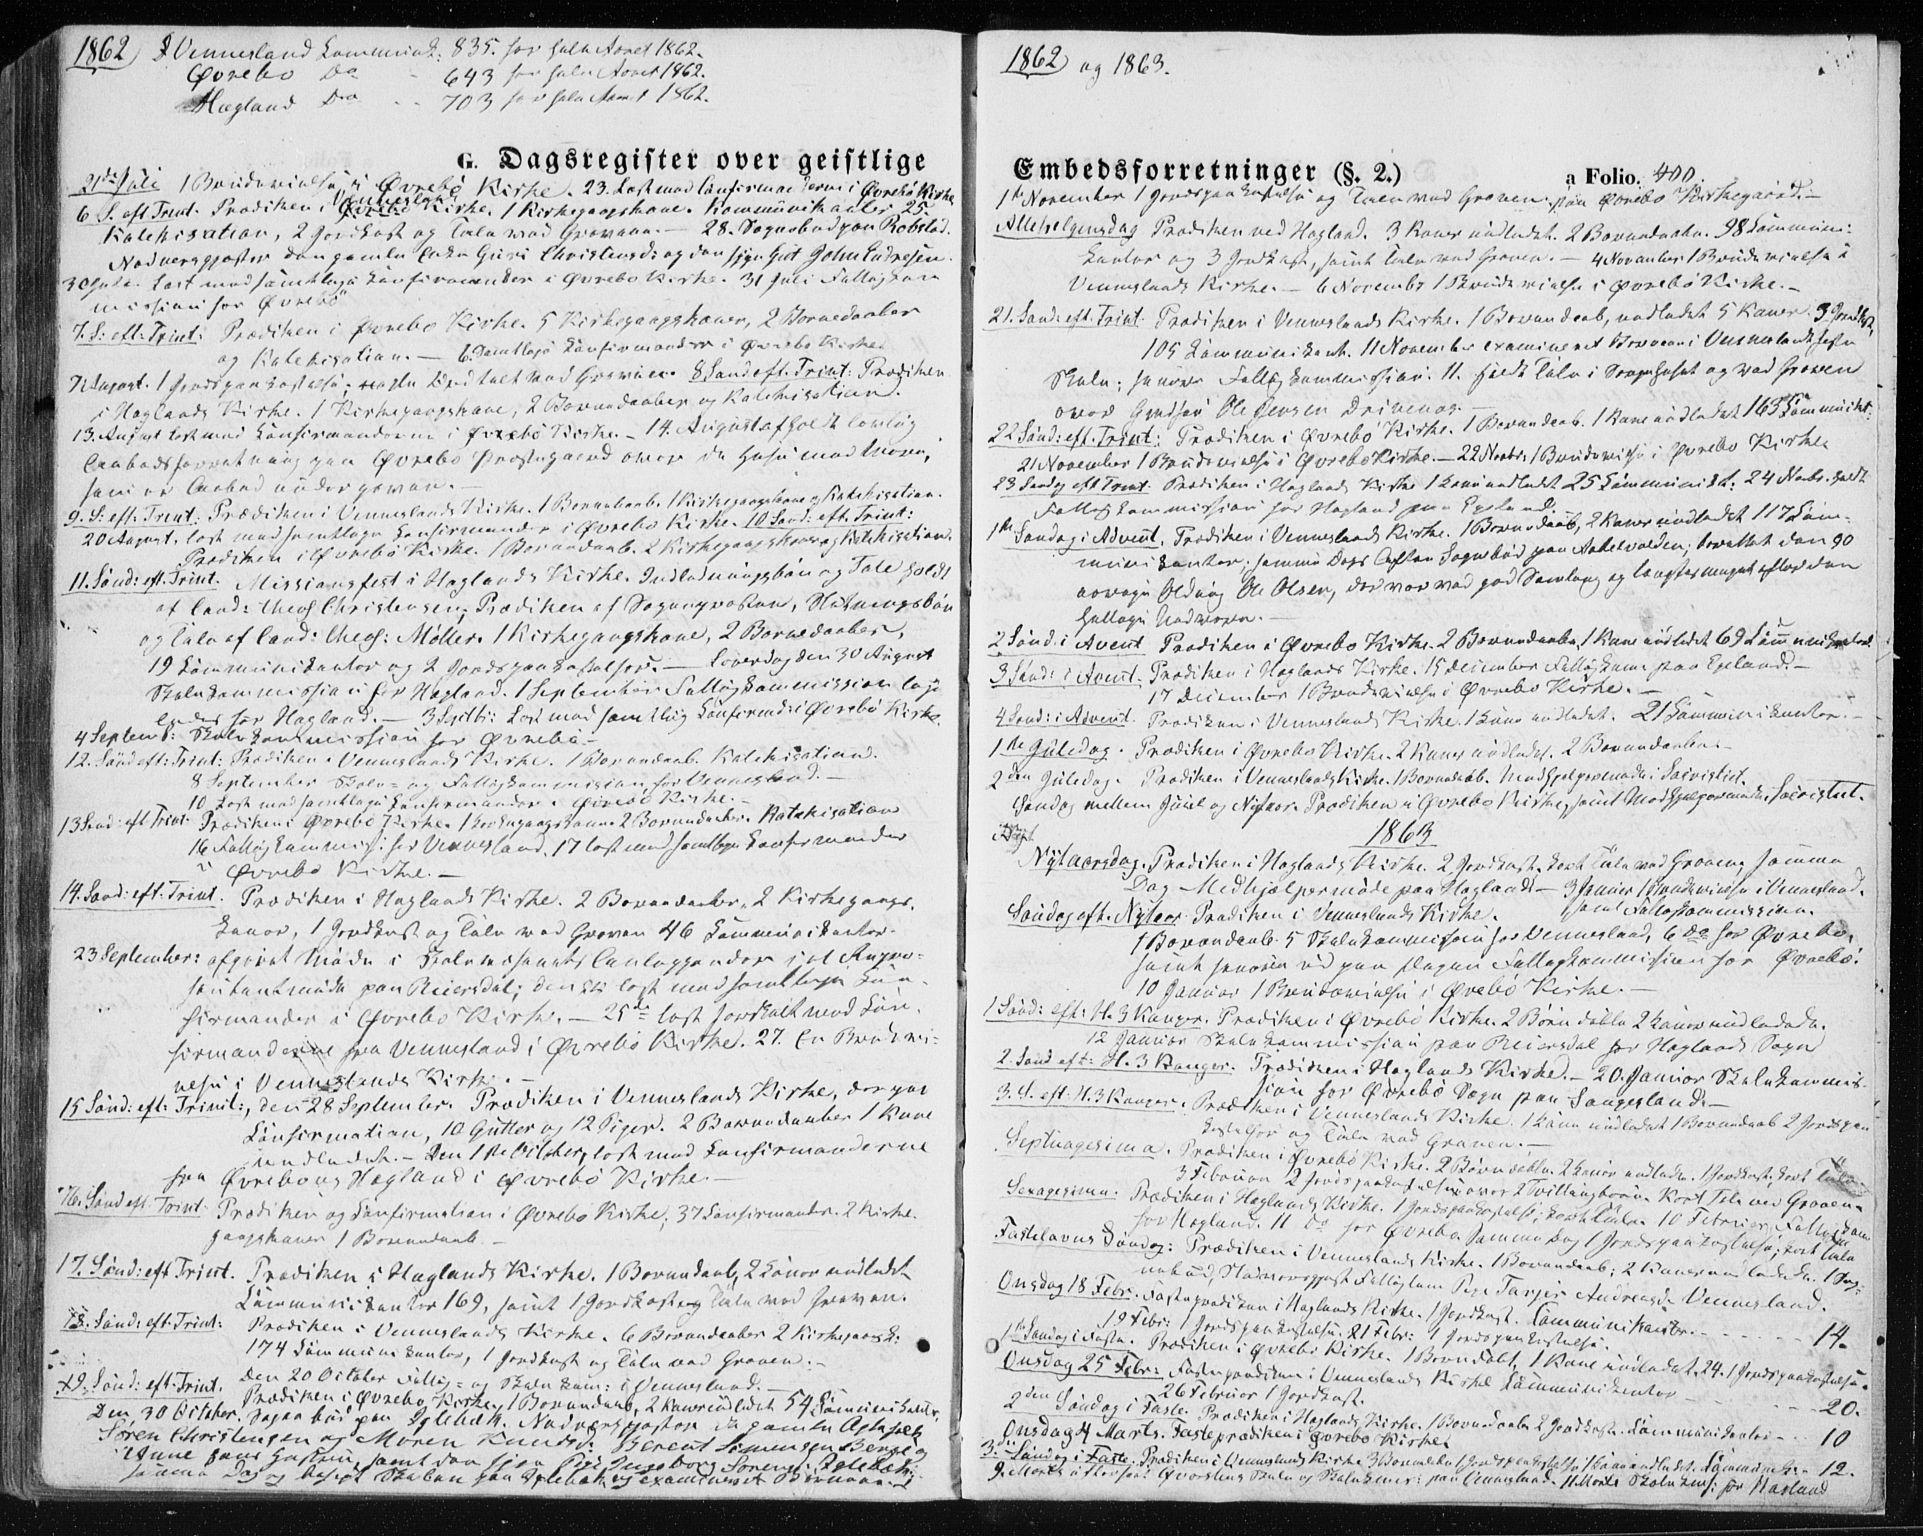 1862 I Vennesland Communion: 835. for hele Aaret 1862.
Øvrebø Do - 643 for hele Aaret 1862.
Hægland Do - - 703 for hele Aaret 1862.
G. Dagsregister over geistlige
21de Juli 1 Brudevielse i Øvrebø Kirke. 23. Læst med Confirmanderne i Øvrebø Kirke
6 S. eft. Trint. Prædiken i Venneslands Kirke. 1 Kirkegangskone. Kommunikanter 25.
Katekisation, 2 Jordkast og Tale ved Gravene. — 28. Sognebud paa Robstad.
Nadvergjæster den gamle Enke Guri Christensd: og den syge Gut John Endresen.
30 Juli. Læst med samtlige Confirmander i Øvrebø Kirke. 31 Juli Fattigkom
mission for Øvrebø
7. S: eft: Trint: Prædiken i Øvrebø Kirke. 5 Kirkegangskoner, 2 Barnedaaber
og Katekisation. — 6. Samtlige Confirmander i Øvrebø Kirke
7 August. 1 Jordpaakastelse; Tale ved Graven. 8 Sønd. eft. Trint: Prædiken
i Hæglands Kirke. 1 Kirkegangskone, 2 Barnedaaber og Katekisation.
13. August læst med Confirmanderne i Øvrebø Kirke. — 14. August afholdt lovlig
Aabodsforretning paa Øvrebø Præstegaard over de Huse med Mere,
som er Aabod undergiven. —
9. S: eft: Trint: Prædiken i Venneslands Kirke. 1 Barnedaab. 1 Kirkegangskone og Katekisation.
20 August. læst med samtlige Confirmander i Øvrebø Kirke. 10 Sønd: eft. Trint:
Prædiken i Øvrebø Kirke. 1 Barnedaab. 2 Kirkegangskoner og Katekisation.
11. Sønd: eft. Trint. Missionsfest i Hæglands Kirke. Indledningsbøn og Tale holdt
af Cand: theol. Christensen; Prædiken af Sognepresten, Slutningsbøn
og Tale af Cand: theol: Møller. 1 Kirkegangskone, 2 Barnedaaber,
19 Communikanter og 2 Jordpaakastelser. — Løverdag den 30 August
Skolekommission for Hægland. 1 September Fattigkommission lige
ledes for Hægland. — 3 Septb: Læst med samtlige Confirmd: i Øvrebø Kirke.
4 Septemb: Skolekommission for Øvrebø. —
12. Sønd eft: Trint: Prædiken i Venneslands Kirke. 1 Barnedaab. Katekisationd.
8 September Skole- og Fattigkommission for Vennesland. —
10 Læst med samtlige Confirmander i Øvrebø Kirke. —
13 Sønd: eft Trint. Prædiken i Øvrebø Kirke. 1 Kirkegangskone. 2 Barnedaaber. Katekisation
16. Fattigkommiss: for Vennesland. 17 læst med samtlige Confirmander
i Øvrebø Kirke. —
14. Sønd: eft. Trint. Prædiken i Hæglands Kirke. 2 Barnedaaber. 2 Kirkegangs-
koner, 1 Jordkast og Tale ved Graven 46 Communikanter.
23 September: afgivet Møde i Skolevæsenets Anliggender i et Repræ-
sentantmøde paa Reiersdal; den læst med samtlige Con-
firmander i Øvrebø Kirke. — 25de læst særskilt med Con-
firmanderne fra Vennesland i Øvrebø Kirke. 27. En Brudevi-
else i Venneslands Kirke. —
15 Sønd: eft: Trinit:, den 28 September. Prædiken i Venneslands Kirke, der paa
Confirmation, 10 Gutter og 12 Piger. 2 Barnedaaber 1 Kone
indledet. — Den 1ste October læst med Confirmanderne
fra Øvrebø og Hægland i Øvrebø Kirke. —
16. Sønd eft Trint. Prædiken og Confirmation i Øvrebø Kirke. 37 Confirmander. 2 Kirke-
gangskoner 1 Barnedaab. —
17. Sønd: eft Trint. Prædiken i Hæglands Kirke. 1 Barnedaab, 2 Koner indledet
Communikanter 169, samt 1 Jordkast og Tale ved Graven.
18. Sønd: eft. Trint: Prædiken i Venneslands Kirke. 6 Barnedaaber 2 Kirkegangsk:
174 Communikanter, 1 Jordkast og Tale ved Graven. —
Den 20 October Fattig- og Skolekom: i Vennesland. —
19. Sønd: eft. Trint. Prædiken i Øvrebø Kirke, 1 Barnedaab, 2 Koner indledet 54 Communikanter.
Den 30 October. Sognebud paa Iglebæk. Nadvergjæster de gamle Ægtefolk
Søren Christensen og Maren Knudsd: Berent Simensen Berge og
Anne hans Hustru, samt den syge Pige Ingeborg Sørensd: Iglebæk.
Samme Dag besøgt Skolen paa Iglebæk og examineret Børnene.
1862 og 1863.
Embedsforretninger (§. 2.) a Folio. 400.
1ste November 1 Jordpaakastelse og Tale ved Graven paa Øvrebø Kirkegaard. —
Allehelgensdag Prædiken ved Hægland. 3 Koner indledet. 2 Barnedaaber. 98 Commüni-
kanter og 3 Jordkast, samt Tale ved Graven. — 4 November 1 Brudevielse i
Venneslands Kirke. — 6 Novembr 1 Brudevielse i Øvrebø Kirke. —
21. Sønd: eft. Trint. Prædiken i Venneslands Kirke. 1 Barnedaab, indledet 5 Koner. 3 Jordkast,
105 Communikant. 11 November examineret Børnene i Venneslands faste
Skole; senere Fattigkommission. 11. holdt Tale i Sørgehuset og ved Graven
over Grædsen Ole Jensen Drivenes. —
22 Sønd: eft. Trint: Prædiken i Øvrebø Kirke. 1 Barnedaab. 1 Kone indledet 163 Communikt.
21 November 1 Brudevielse i Øvrebø Kirke. — 22 Novbr. 1 Brudevielse i Øvrebø Kirke
23 Søndag eft Trint. Prædiken i Hæglands Kirke 1 Kone indledet 25 Communikt. 24 Novbr. holdt
Fattigkommission for Hægland paa Egeland.
1ste Søndag i Advent. Prædiken i Venneslands Kirke. 1 Barnedaab, 2 Koner indledet 117 Com-
munikanter. samme Dags Aften Sognebud paa Aakelvolden; berettet den 90
aarige Olding Ole Olsen, der var ved god Samling og længtes meget efter den
hellige Nadvere. —
2 Sønd. i Avent Prædiken i Øvrebø Kirke. 2 Barnedaaber. 1 Kone indledet 69 Communikanter.
3 Sønd: i Avent. Prædiken i Hæglands Kirke. 15 December Fattigkom. paa Egeland. —
17 December 1 Brudevielse i Øvrebø Kirke. —
4 Sønd: i Advent. Prædiken i Venneslands Kirke. 1 Kone indledet. 21 Communikanter. —
1ste Juledag. Prædiken i Øvrebø Kirke. 2 Koner indledet. 2 Barnedaaber. —
2den Juledag. Prædiken i Venneslands Kirke. 1 Barnedaab. Medhjelpermøde i Sacristiet.
Søndag mellem Juul og Nytaar. Prædiken i Øvrebø Kirke, samt Medhjelpermøde i Sacristiet.
1863
Nytaarsdag. Prædiken i Hæglands Kirke. 2 Jordkast. kort Tale ved Graven; samme
Dag Medhjælpermøde paa Hægland. — 3 Januar 1 Brudevielse i Vennesland.
Søndag eft. Nytaar. Prædiken i Venneslands Kirke. samt Fattigkommission.
1 Barnedaab. 5 Skolekommission for Vennesland, 6 do for Øvrebø,
samt senere ud paa Dagen Fattigkommission for Øvrebø.
10 Januar 1 Brudevielse i Øvrebø Kirke. —
1 Sønd: eft: H. 3 Konger. Prædiken i Øvrebø Kirke. 2 Børn døbte 2 Koner indledede.
12 Januar Skolekommission paa Reiersdal for Hæglands Sogn
2. Sønd eft: H. 3 Konger. Prædiken i Hæglands Kirke. — 20. Januar Skolekommis-
sion for Øvrebø Sogn paa Langeland. —
3. S. eft. H. 3 Konger. Prædiken i Venneslands Kirke. 1 Kone indledet 1 Barnedaab 2 Jordpaa-
kastelser og Tale ved Graven. —
Septuagesima. Prædiken i Øvrebø Kirke. 2 Børn døbte. 2 Koner indledn. 1 Jordkast. kort Tale
3 Februar 2 Jordpaakastelser over 2 Tvillingbørn. Kort Tale ved Graven.
Sexagesima: Prædiken i Hæglands Kirke. 1 Jordpaakastelse, kort Tale. 10 Februar Fattigkom
for Hægland. 11 do for Øvrebø Samme Dag 1 Jordpaakastelse, kort Tale
Fastelavns Søndag: Prædiken i Venneslands Kirke. 1 Barnedaab; 2 Koner indledede. 1 Sog-
nebud, Nadvergjæst Fattiglem Pige Tarjer Andreasd. Vennesland.
Onsdag 18 Febr. Fasteprædiken i Hæglands Kirke. 1 Jordkast. Communikanter - - - - - 14.
19 Febr: 1 Jordpaakastelse. 21 Febr: 1 Jordpaakastelse.
1ste Søndag i Faste. Prædiken i Øvrebø Kirke. 1 Barn døbt, 1 Kone indledet. 24. 1 Jordpaakastelse.
Onsdag 25 Febr: Fasteprædiken i Venneslands Kirke Communikanter - - - - 20.
26 Februar 1 Jordkast.
2den Søndag i Faste. Prædiken i Hæglands Kirke. 1 Barnedaab 2 Jordkast. Communikanter - - - 10
Onsdag 4 Marts. Fasteprædiken i Øvrebø Kirke.
3die Søndag i Faste. Prædiken i Venneslands Kirke. 3 Barnedaaber 1 Jordpaakastelse 1 Kone indledet. Communik: - 12.
9. Marts Skole og Skolekom: paa Vennesland. 11 Marts Skolekom: for Hægland